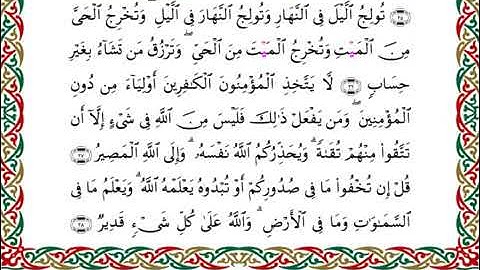 تُولِجُ ٱلَّيْلَ فِى ٱلنَّهَارِ وَتُولِجُ ٱلنَّهَارَ فِى ٱلَّيْلِ ۖ وَتُخْرِجُ ٱلْحَىَّ
مِنَ ٱلْمَيِّتِ وَتُخْرِجُ ٱلْمَيِّتَ مِنَ ٱلْحَىِّ ۖ وَتَرْزُقُ مَن تَشَآءُ بِغَيْرِ
حِسَابٍ لَّا يَتَّخِذِ ٱلْمُؤْمِنُونَ ٱلْكَـٰفِرِينَ أَوْلِيَآءَ مِن دُونِ
ٱلْمُؤْمِنِينَ ۖ وَمَن يَفْعَلْ ذَٰلِكَ فَلَيْسَ مِنَ ٱللَّهِ فِى شَىْءٍ إِلَّآ أَن
تَتَّقُوا۟ مِنْهُمْ تُقَىٰةً ۗ وَيُحَذِّرُكُمُ ٱللَّهُ نَفْسَهُۥ ۗ وَإِلَى ٱللَّهِ ٱلْمَصِيرُ
قُلْ إِن تُخْفُوا۟ مَا فِى صُدُورِكُمْ أَوْ تُبْدُوهُ يَعْلَمْهُ ٱللَّهُ ۗ وَيَعْلَمُ مَا فِى
ٱلسَّمَـٰوَٰتِ وَمَا فِى ٱلْأَرْضِ ۗ وَٱللَّهُ عَلَىٰ كُلِّ شَىْءٍ قَدِيرٌ